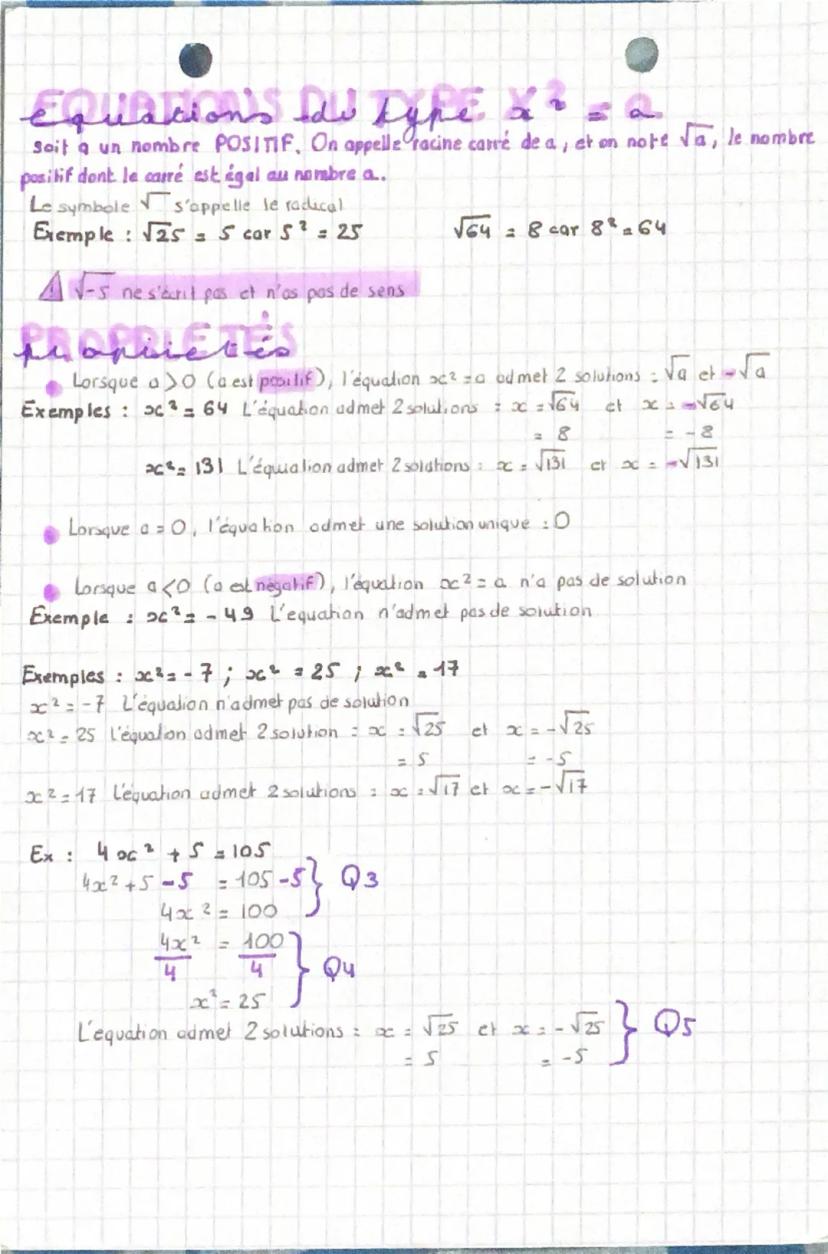 EQUATIONS DU TYPE X² = a
équations du type x² = a
Soit a un nombre POSITIF. On appelle racine carré de a, et on note √a, le nombre
positif dont le carré est égal au nombre a.
Le symbole √ s'appelle le radical
Exemple : √25 = 5 car 5² = 25 √64 = 8 car 8² = 64
⚠ √-5 ne s'écrit pas et n'as pas de sens
PROPRIETÉS
propriétés
Lorsque a > 0 (a est positif), l'équation x² = a admet 2 solutions : √a et -√a
Exemples : x² = 64 L'équation admet 2 solutions : x = √64 et x = -√64
= 8 = -8
x² = 131 L'équation admet 2 solutions : x = √131 et x = -√131
Lorsque a = 0, l'équation admet une solution unique : 0
Lorsque a < 0 (a est négatif), l'équation x² = a n'a pas de solution
Exemple : x² = -49 L'equation n'admet pas de solution
Exemples : x² = -7 ; x² = 25 ; x² = 17
x² = -7 L'équation n'admet pas de solution
x² = 25 l'équation admet 2 solution : x = √25 et x = -√25
= 5 = -5
x² = 17 L'équation admet 2 solutions : x = √17 et x = -√17
Ex : 4x² + 5 = 105
4x² + 5 - 5 = 105 - 5 } Q3
4x² = 100
4x²/4 = 100/4 } Q4
x² = 25
L'equation admet 2 solutions : x = √25 et x = -√25 } Q5
= 5 = -5